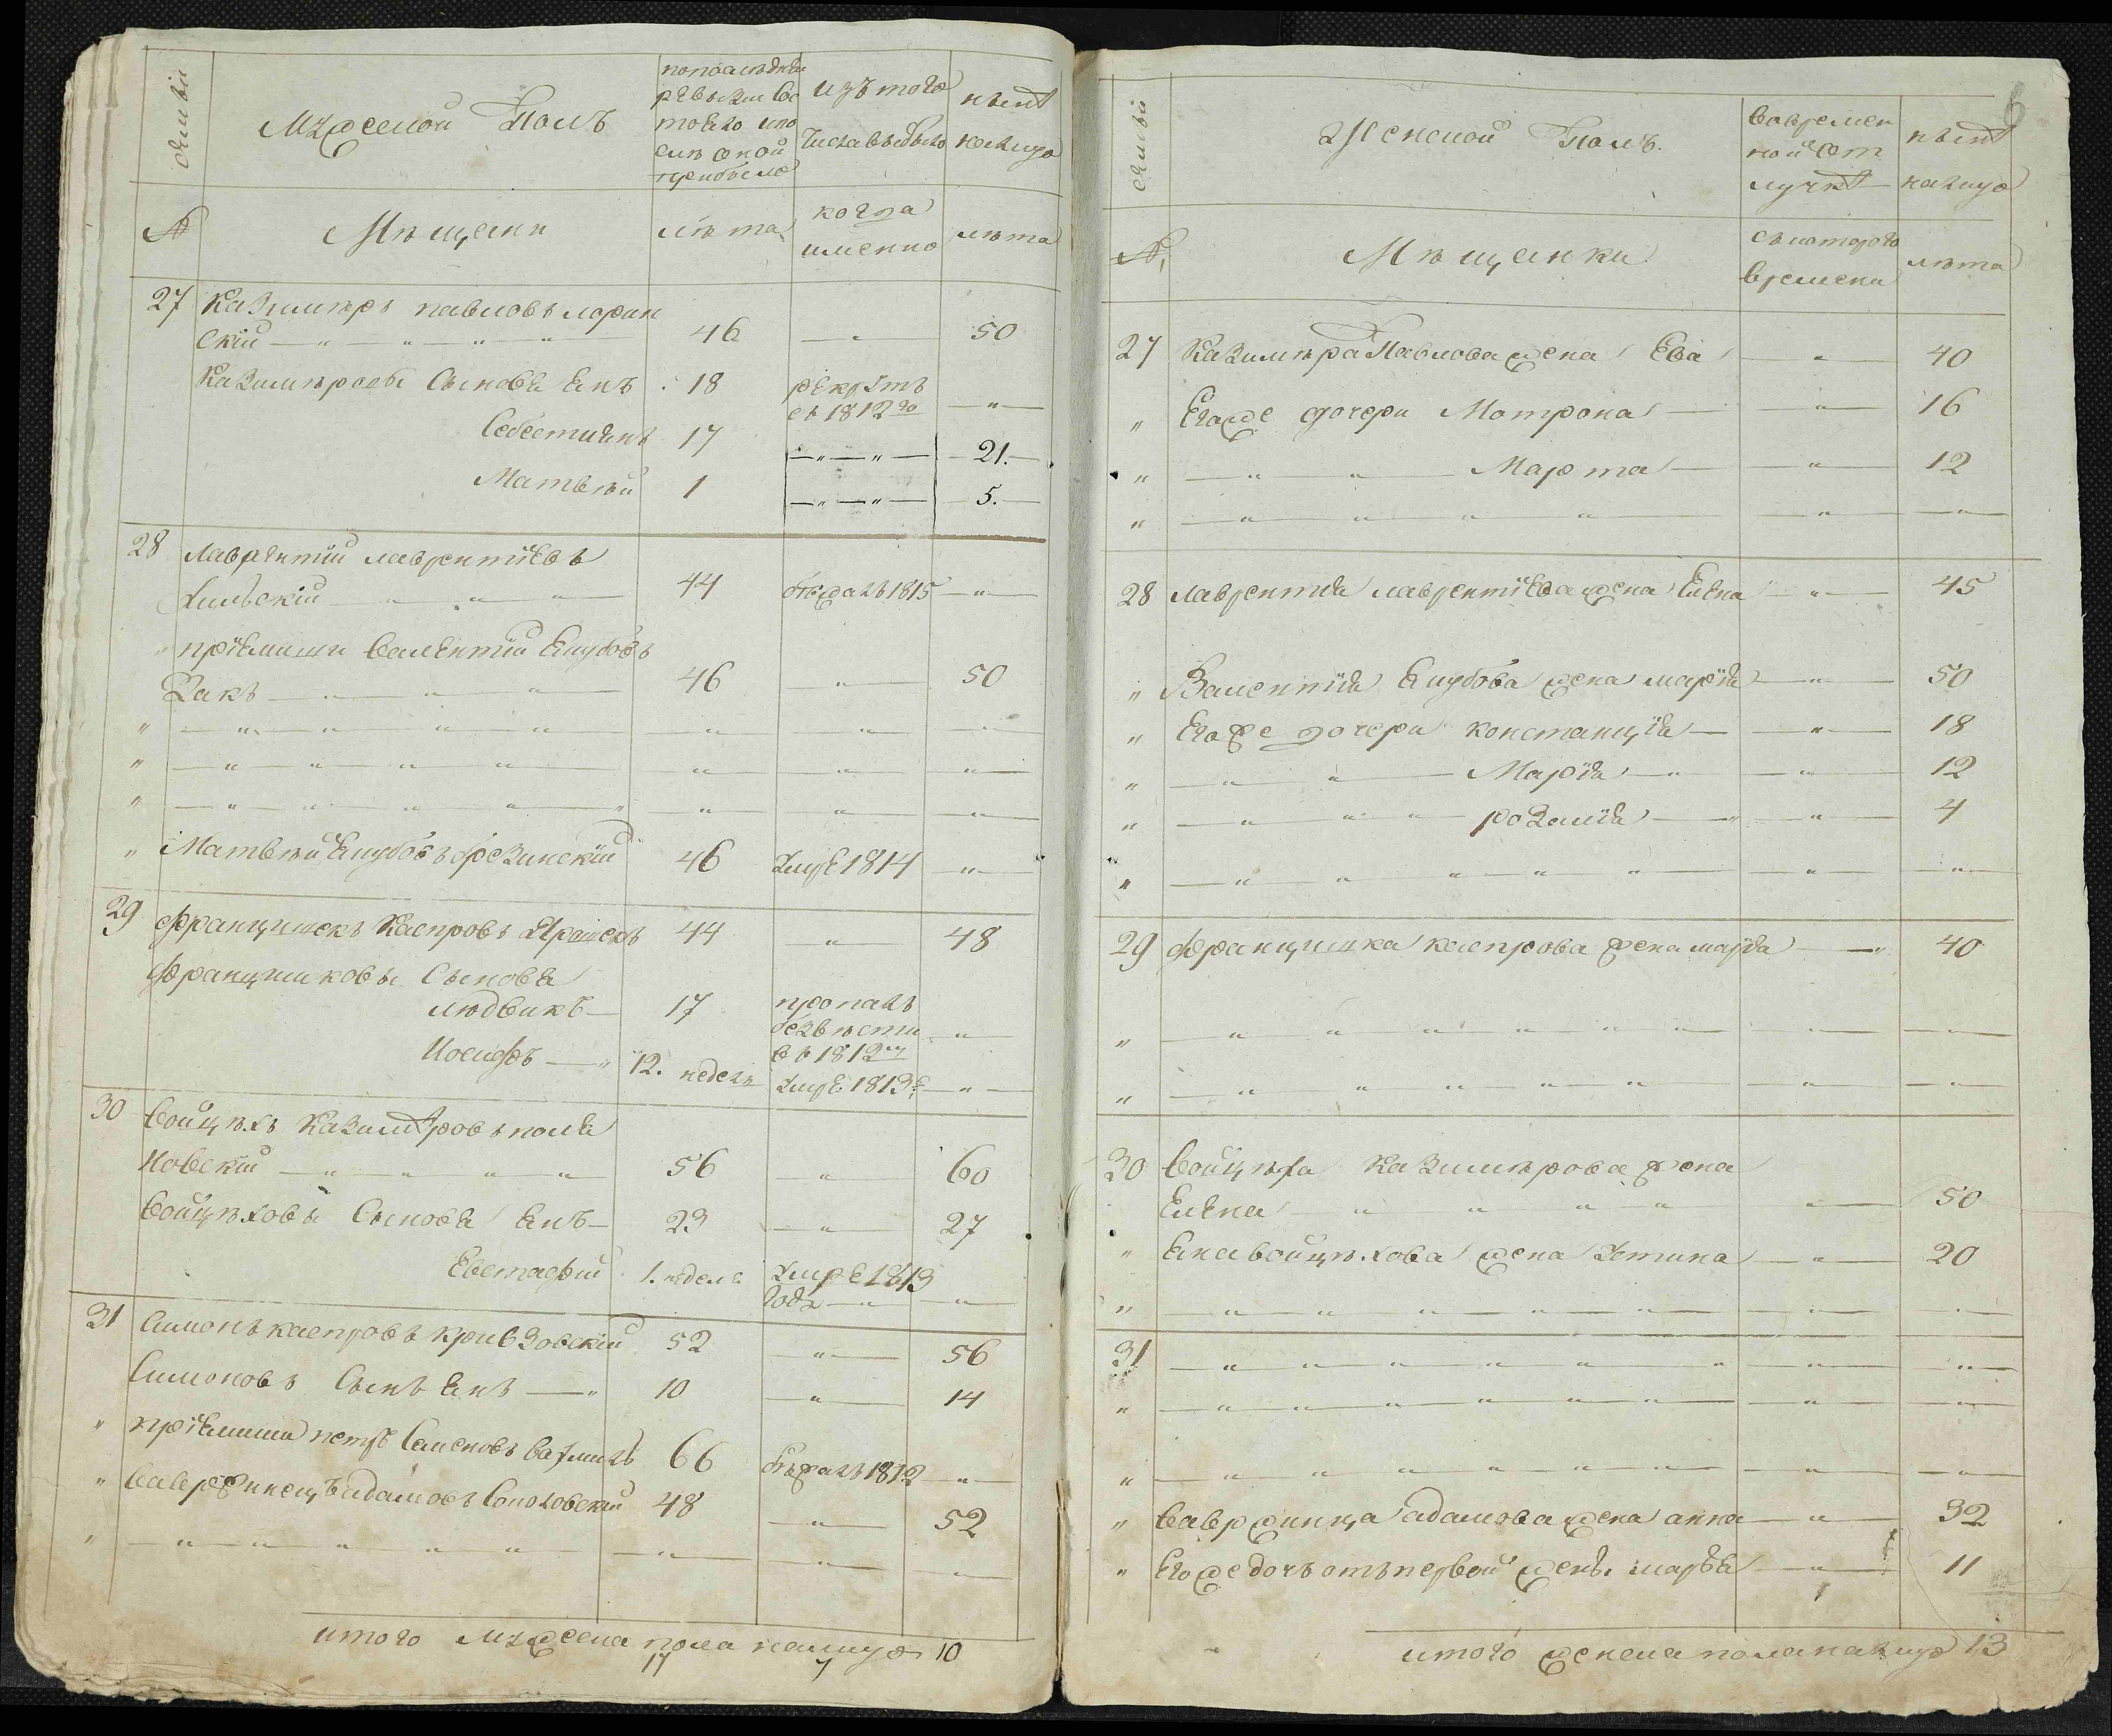 семьи
Мужеской Полъ
попослѣдней
ревизии сос
тояло ипо
слѣ оной
прибыло
изъ того
числа выбыло
нынѣ
налицо
№
Мѣщане
лѣта
когда
именно
лѣта
27 Казимиръ павловъ лорин
скій 46 50
Казимировы Сыновя Янъ 18 рекрутъ
въ 1812го
Себестиянъ 17 21.
Матвѣй 1 5.
28 Лаврентій лаврентіевъ
44 бѣжалъ 1815
пріемыши Валентій Якубовъ
Ракъ 46 50
Матвѣй Якубовъ брезинскій 46 умре 1814
29 Францишекъ Каспровъ 44 48
Францишковы Сыновя
людвикъ 17 пропалъ
безвѣсти
въ 1812мъ
Иосифъ 12. недель умре 1813
30 Войцѣхъ Казимировъ поля
новскій 56 60
Войцѣховы Сыновя Янъ 23 27
Евстафій 1. неделя умре 1813
года
31 Симонъ каспровъ кривзовскій 52 56
Симоновъ Сынъ Янъ 10 14
пріемыши петръ Семеновъ 66 бѣжалъ 1812
Вавержинецъ адамовъ Соколовскій 48 52
итого мужеска пола налицо 10
17 7
6
семьи
Женской Полъ.
вовремен
ной от
лучкѣ
нынѣ
налицо
№
Мѣщанки
съкотораго
времени
лѣта
27 Казимира Павлова жена Ева 40
Егоже дочери Мотрона 16
Марта 12
28 лаврентія лаврентіева жена Елена 45
Валентія Якубова жена марія 50
Егоже дочери констанція 18
Марія 12
розалія 4
29 Францишка каспрова жена марія 40
30 Войцѣха Казимирова жена
Елена 50
Яна войцѣхова жена Устина 20
31
Вавржинца адамова жена анна 32
Егоже дочь отъ первой жены марья 11
итого женска пола налицо 13